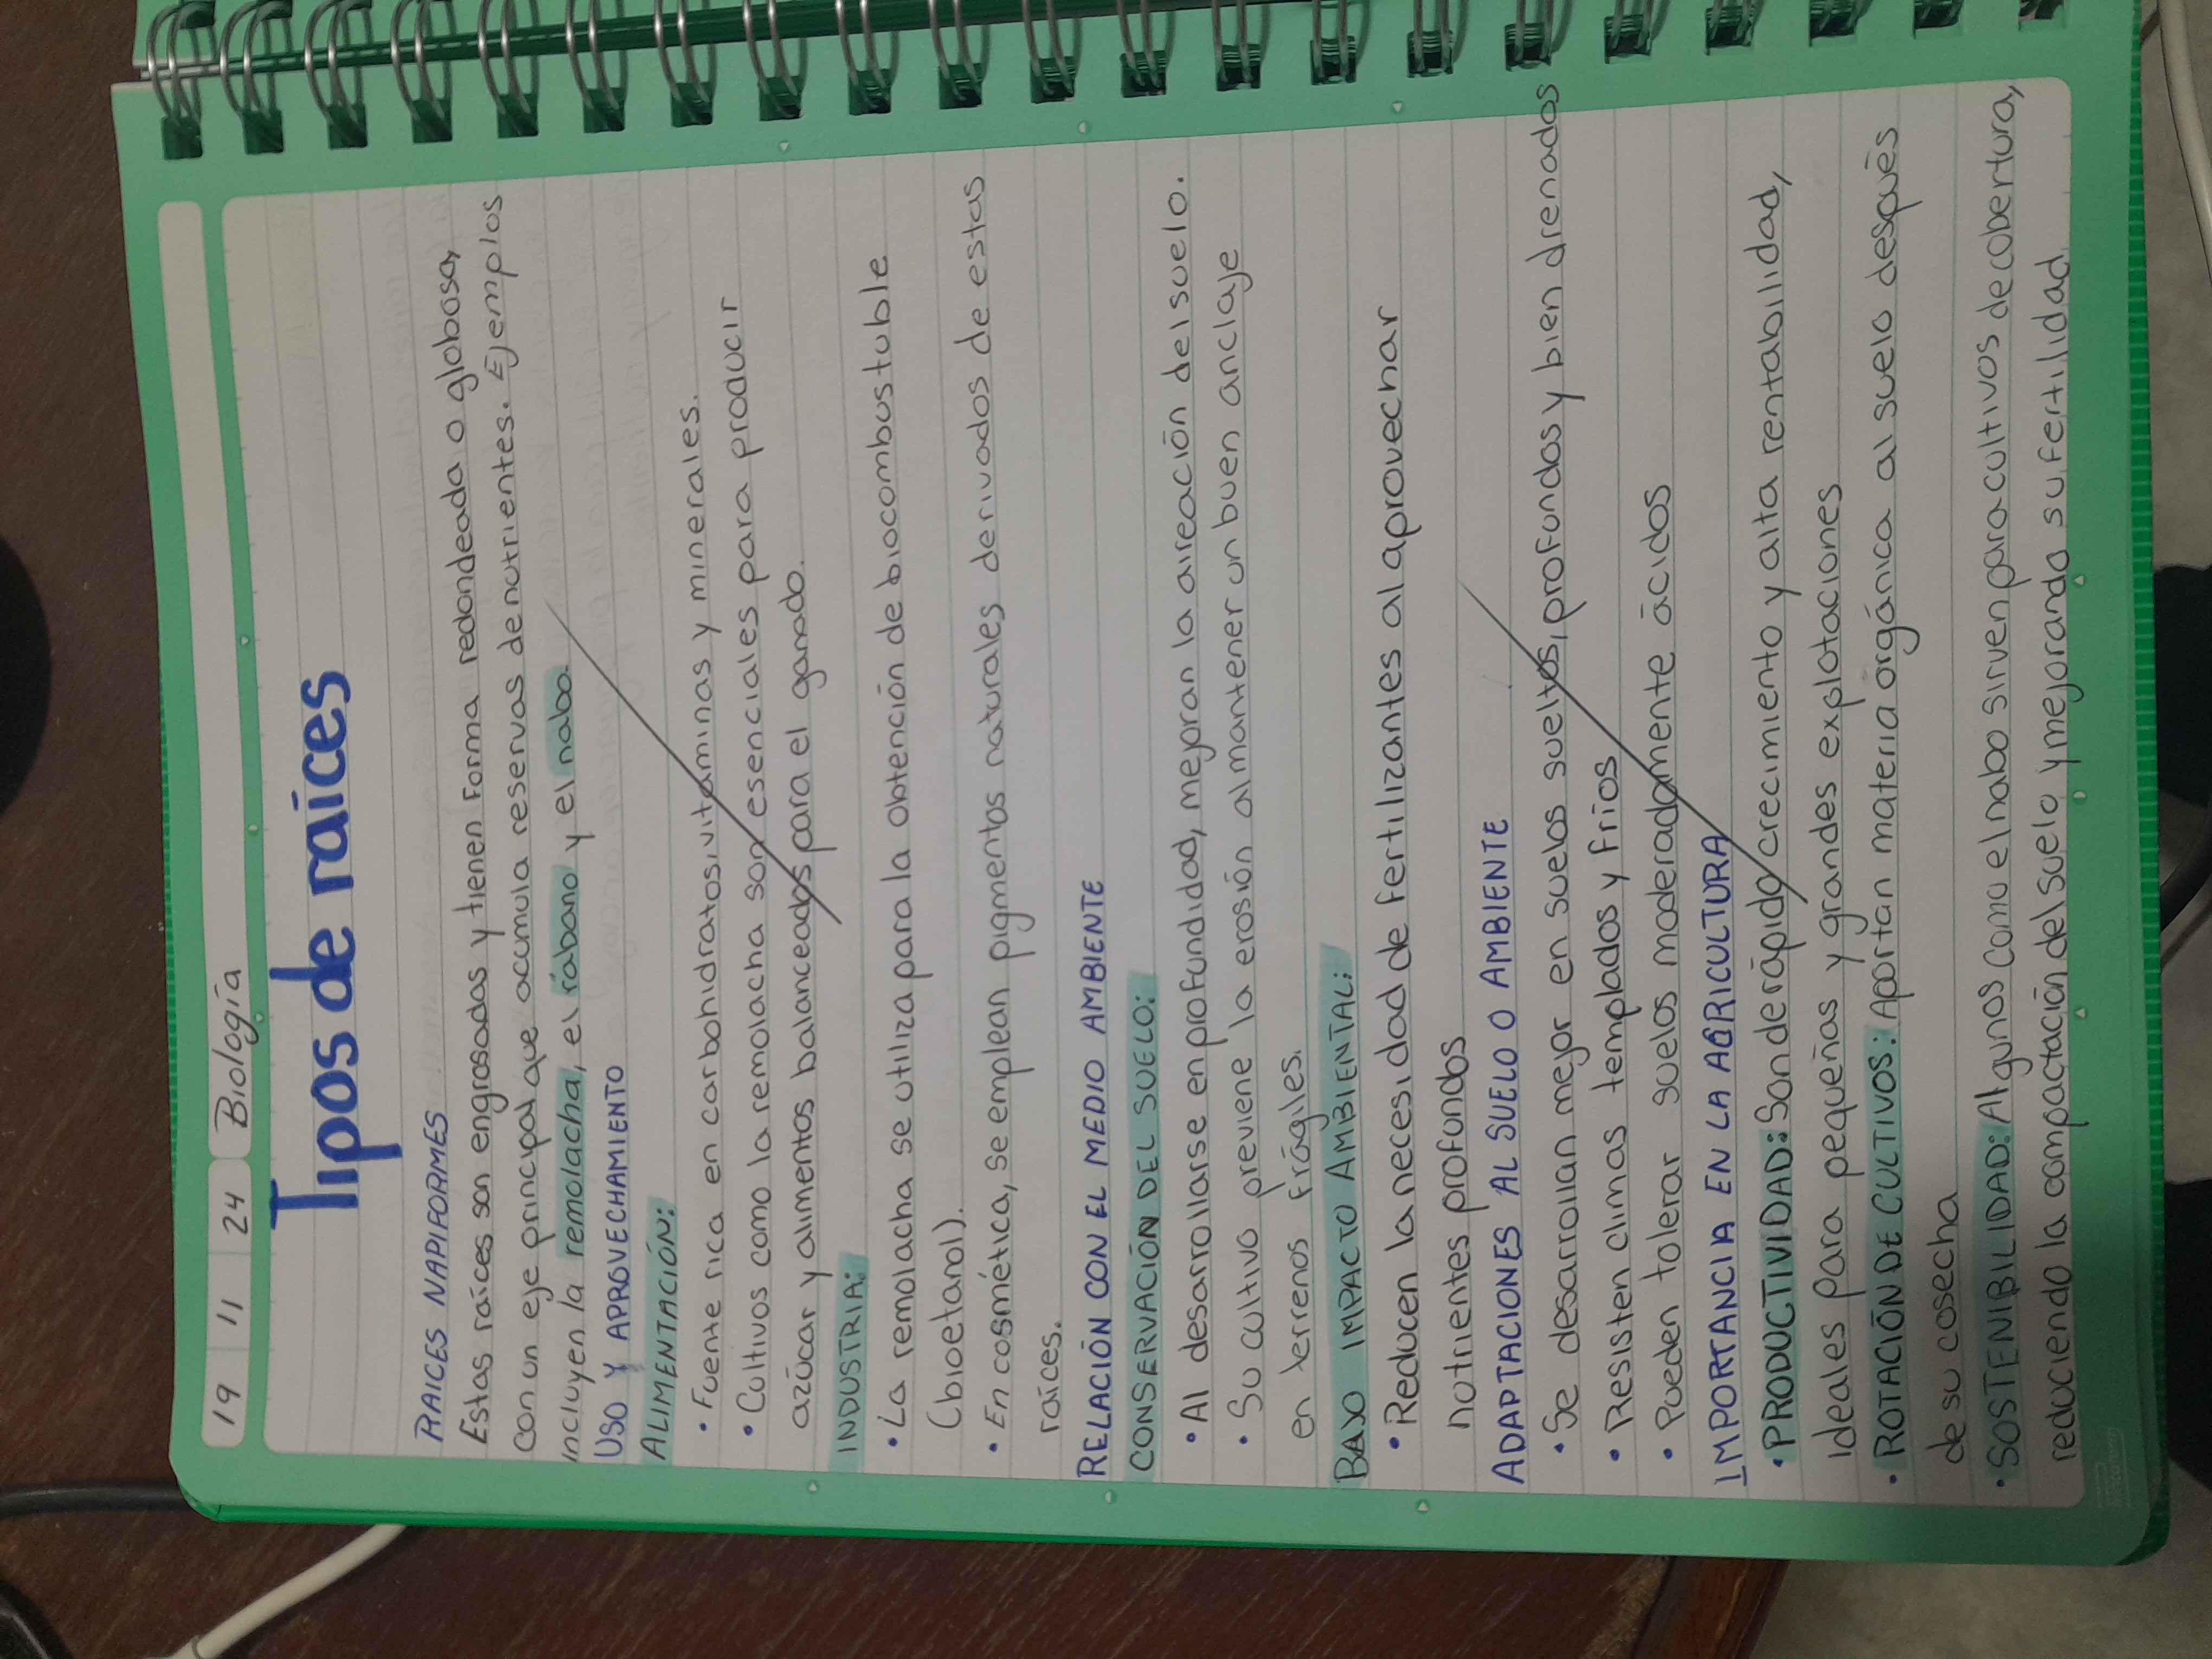 19 11 24 Biología
Tipos de raíces
RAICES NAPIFORMES
Estas raíces son engrosadas y tienen forma redondeada o globosa,
con un eje principal que acumula reservas de nutrientes. Ejemplos
incluyen la remolacha, el rábano y el nabo.
USO Y APROVECHAMIENTO
ALIMENTACIÓN:
• Fuente rica en carbohidratos, vitaminas y minerales.
• Cultivos como la remolacha son esenciales para producir
azúcar y alimentos balanceados para el ganado.
INDUSTRIA:
• La remolacha se utiliza para la obtención de biocombustuble
(bioetanol).
• En cosmética, se emplean pigmentos naturales derivados de estas
raíces.
RELACIÓN CON EL MEDIO AMBIENTE
CONSERVACIÓN DEL SUELO:
• Al desarrollarse en profundidad, mejoran la aireación del suelo.
• Su cultivo previene la erosión al mantener un buen anclaje
en terrenos frágiles.
BAJO IMPACTO AMBIENTAL:
• Reducen la necesidad de fertilizantes al aprovechar
nutrientes profundos
ADAPTACIONES AL SUELO O AMBIENTE
• Se desarrollan mejor en suelos sueltos, profundos y bien drenados
• Resisten climas templados y fríos
• Pueden tolerar suelos moderadamente ácidos
IMPORTANCIA EN LA AGRICULTURA
• PRODUCTIVIDAD: Son de rápido crecimiento y alta rentabilidad,
ideales para pequeñas y grandes explotaciones
• ROTACIÓN DE CULTIVOS: Aportan materia orgánica al suelo después
de su cosecha
• SOSTENIBILIDAD: Algunos como el nabo sirven para cultivos de cobertura,
reduciendo la compactación del suelo y mejorando su fertilidad